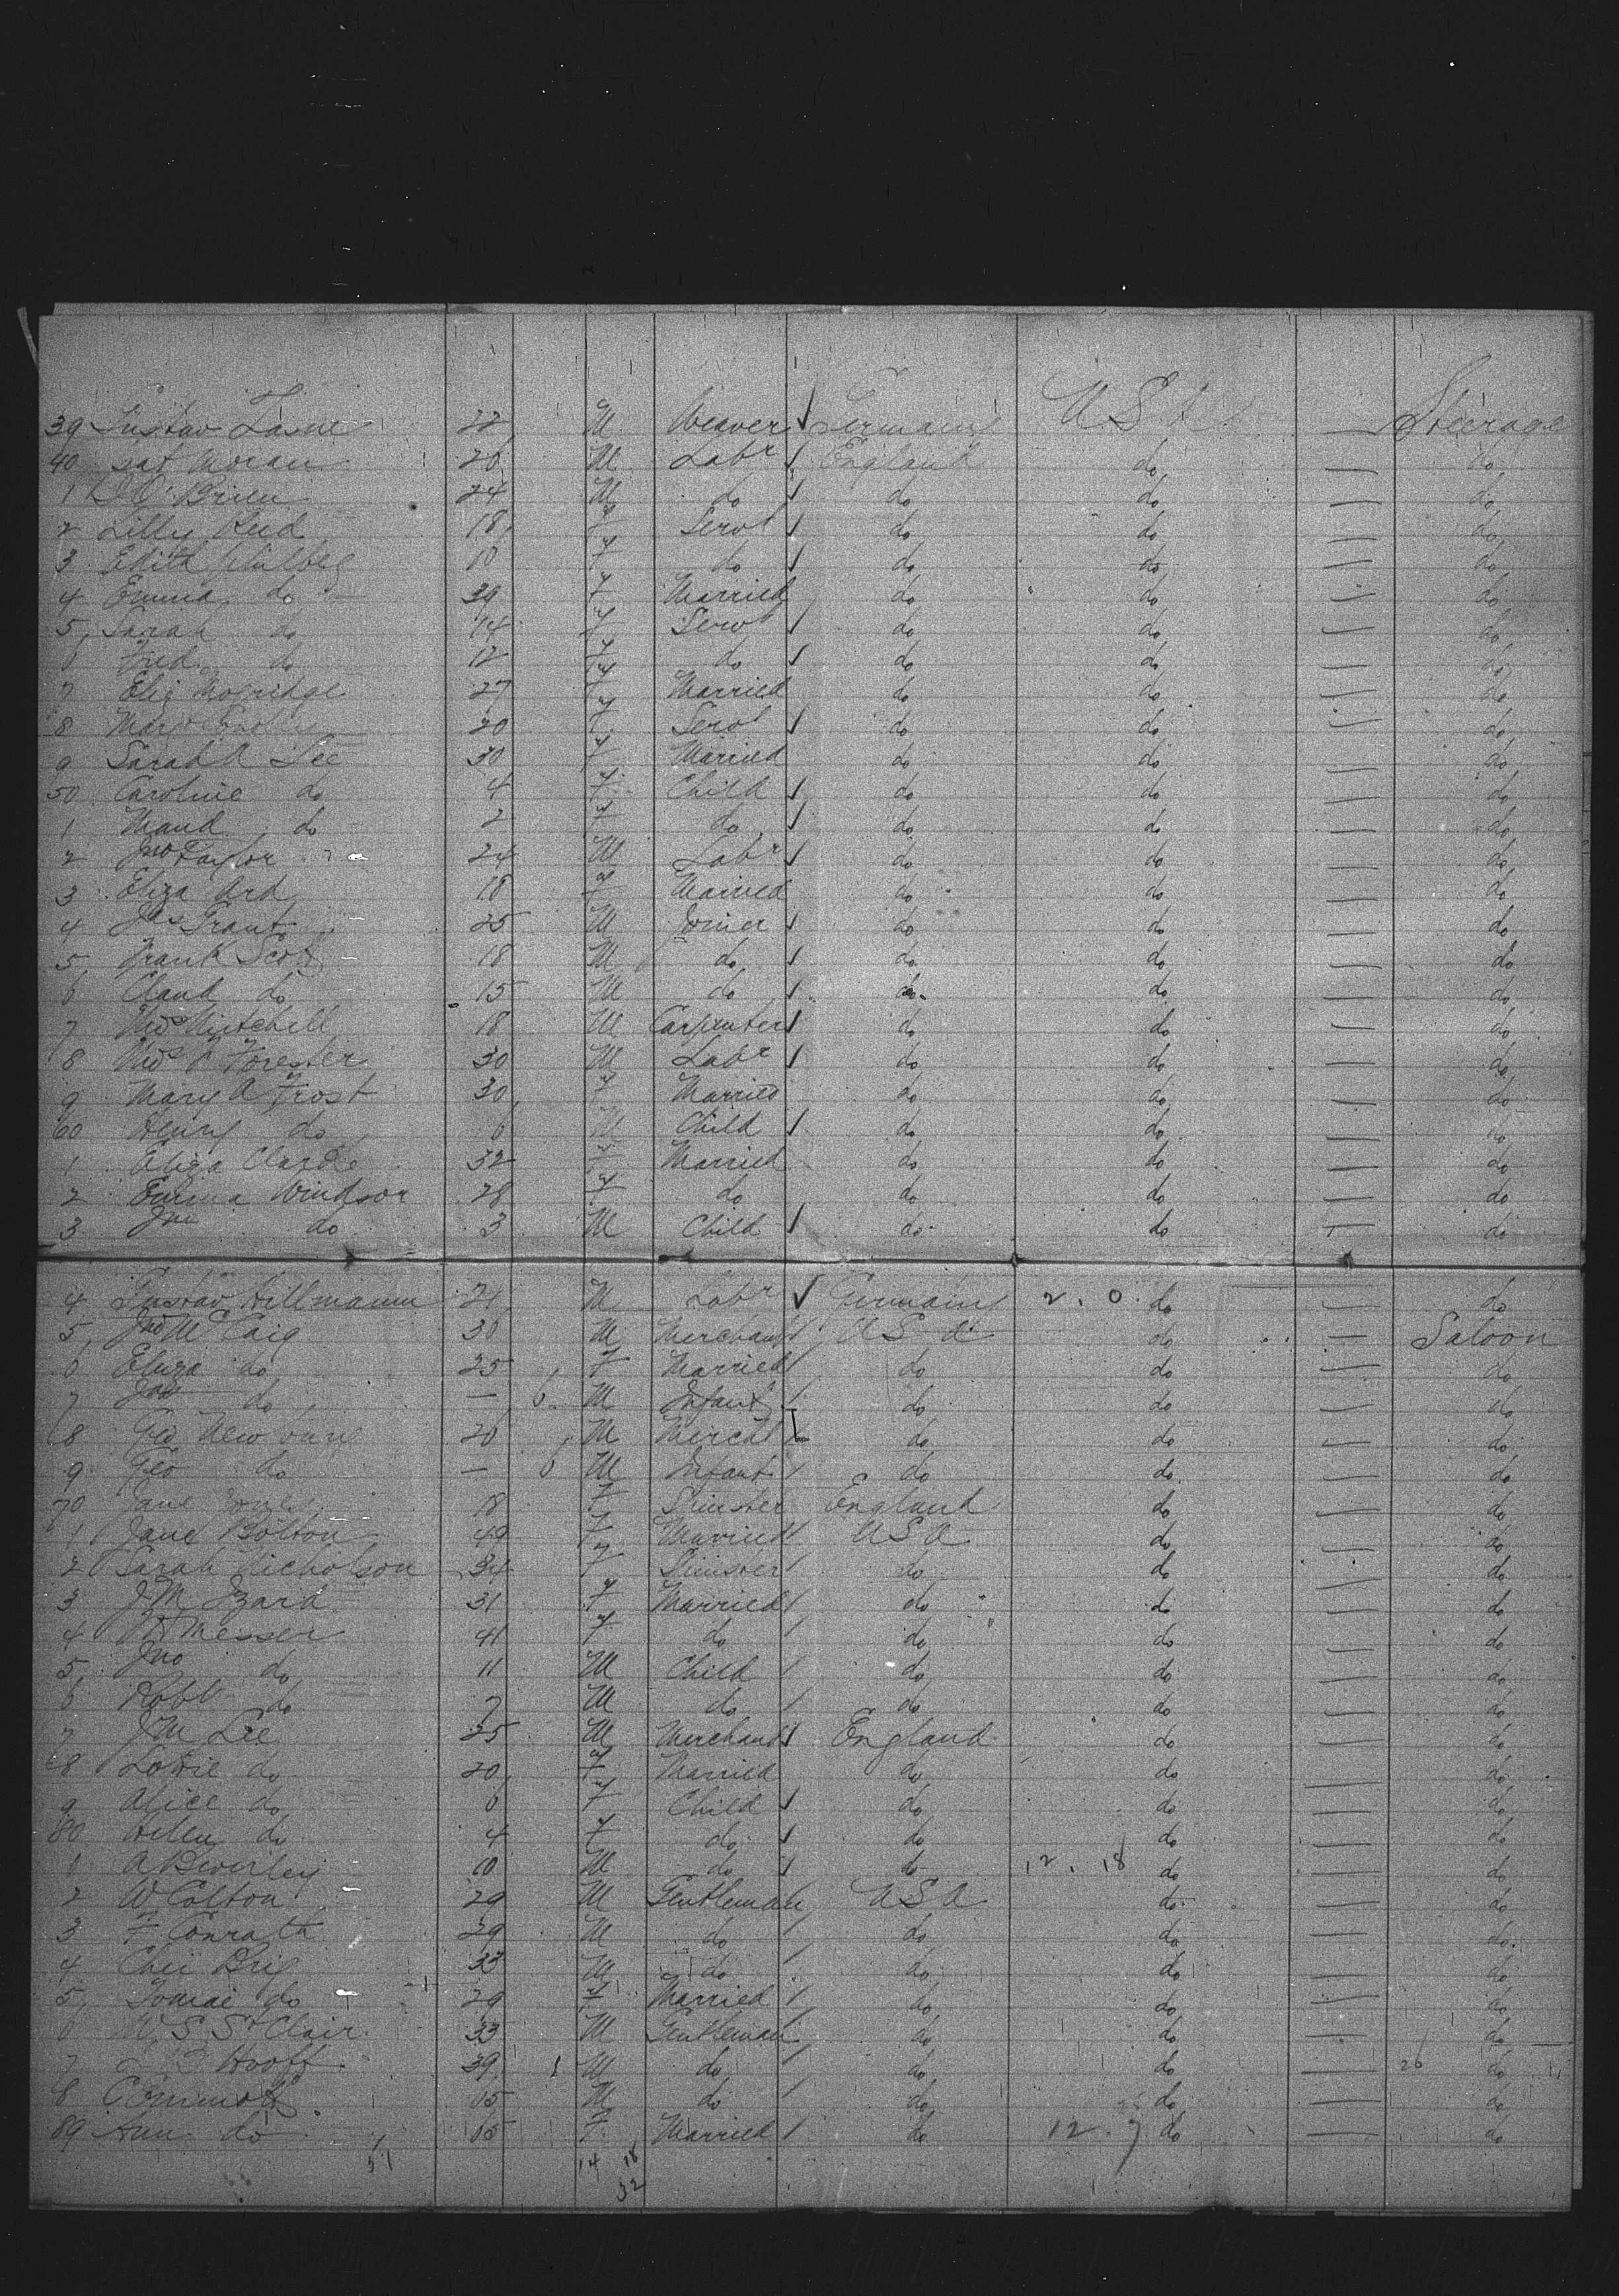 39 Gustav 22 M Weaver Germany U S A — Steerage
40 Pat Moran 20 M Labr England do — do
1 D O'Brien 24 M do do do — do
2 Lilly Reed 18 F Servt do do — do
3 Edith 10 F do do do — do
4 Emma do 39 F Married do do — do
5 Sarah do 14 F Servt do do — do
6 Fred do 12 F do do do — do
7 Eliz 27 F Married do do — do
8 Mary 20 F Servt do do — do
9 Sarah A Lee 30 F Married do do — do
50 Caroline do 4 F Child do do — do
1 Maud do 2 F do do do — do
2 Jno Taylor 24 M Labr do do — do
3 Eliza Ord 18 F Married do do — do
4 Jas Grant 25 M Joiner do do — do
5 Frank Scott 18 M do do do — do
6 Claud do 15 M do do do — do
7 Thos Mitchell 18 M Carpenter do do — do
8 Thos Forester 30 M Labr do do — do
9 Mary A Frost 30 F Married do do — do
60 Henry do 6 M Child do do — do
1 Eliza 32 F Married do do — do
2 Emma Windsor 28 F do do do — do
3 Jno do 3 M Child do do — do
4 Gustav Hillmann 21 M Labr Germany 2.0 do — do
5 Jno McCaig 30 M Merchant U S A do — Saloon
6 Eliza do 25 F Married do do — do
7 do — 6 M Infant do do — do
8 Geo 20 M Mercht do do — do
9 Geo do — 6 M Infant do do — do
70 Jane 18 F England do — do
1 Jane Bolton 49 F Married U S A do — do
2 Sarah Nicholson 34 F do do — do
3 J M Izard 31 F Married do do — do
4 Messer 41 F do do do — do
5 Jno do 11 M Child do do — do
6 Robt do 7 M do do do — do
7 J M Lee 25 M Merchant England do — do
8 Lottie do 20 F Married do do — do
9 Alice do 6 F Child do do — do
80 Helen do 4 F do do do — do
1 A 10 M do do 12.18 do — do
2 W Colton 29 M Gentleman U S A do — do
3 F Conrath 29 M do do do — do
4 33 M do do do — do
5 do 29 F Married do do — do
6 W S St Clair 33 M Gentleman do do — do
7 Hooff 39 M do do do — 20 do
8 65 M do do do — do
89 Ann do 65 F Married do 12.7 do — do
51 14 18
32